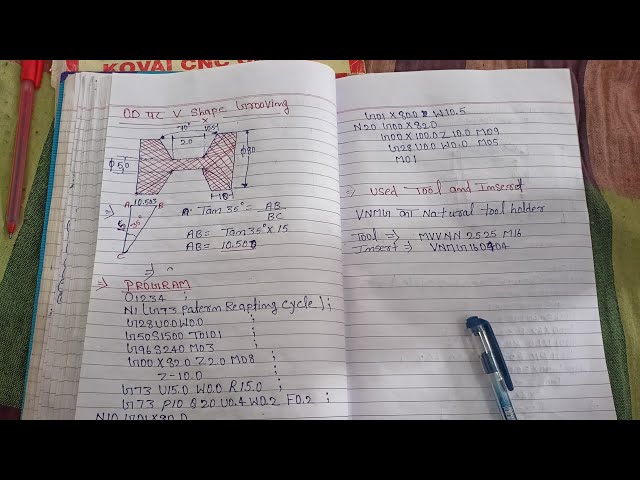 KOVAI CNC
OD पर V Shape Grooving
70°
X
10.5
20
φ50
φ80
10
A 10.503 B
15
35°
C
⇒ Tan 35° = AB/BC
AB = Tan 35° × 15
AB = 10.503
⇒
⇒ PROGRAM
O1234 ;
N1 (G73 patern Reapting Cycle) ;
G28 U0.0 W0.0 ;
G50 S1500 T0101 ;
G96 S240 M03 ;
G00 X82.0 Z2.0 M08 ;
Z-10.0 ;
G73 U15.0 W0.0 R15.0 ;
G73 P10 Q20 U0.4 W0.2 F0.2 ;
N10 G01 X80.0
G01 X80.0 W10.5
N20 G00 X82.0
G00 X100.0 Z10.0 M09
G28 U0.0 W0.0 M05
M01
⇒ Used Tool and Insert
VNMG का Natural tool holder
Tool ⇒ MVVNN 2525 M16
Insert ⇒ VNMG 160404